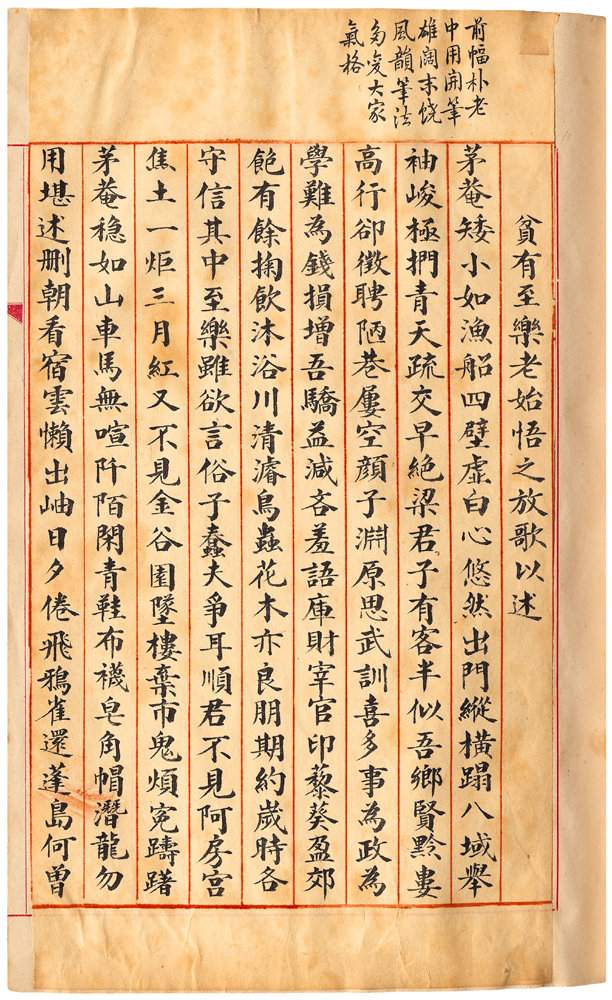 前幅朴老
中用開筆
雄闊末饒
風韻筆法
多受大家
氣格
貧有至樂老始悟之放歌以述
茅菴矮小如漁船四壁虛白心悠然出門縱橫蹋八域舉
袖峻極捫青天疏交早絕梁君子有客半似吾鄉賢黔婁
高行卻徵聘陋巷屢空顏子淵原思武訓喜多事為政為
學難為錢損增吾驕益減吝羞語庫財宰官印藜葵盈郊
飽有餘掬飲沐浴川清濬鳥蟲花木亦良朋期約歲時各
守信其中至樂雖欲言俗子蠢夫爭耳順君不見阿房宮
焦土一炬三月紅又不見金谷園墜樓棄市鬼煩冤躊躇
茅菴穩如山車馬無喧阡陌閑青鞋布襪皂角帽潛龍勿
用堪述刪朝看宿雲懶出岫日夕倦飛鴉雀還蓬島何曾